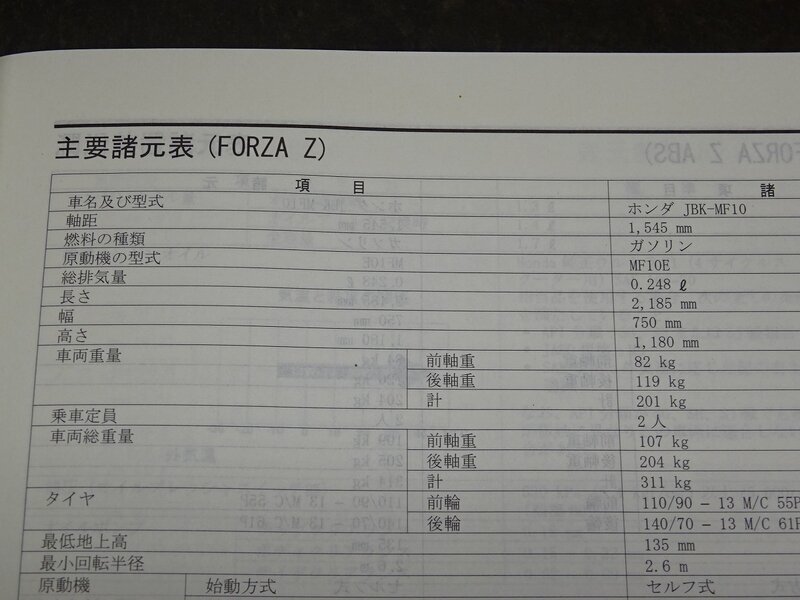 主要諸元表 (FORZA Z)
項 目 諸
車名及び型式 ホンダ JBK-MF10
軸距 1,545 mm
燃料の種類 ガソリン
原動機の型式 MF10E
総排気量 0.248 ℓ
長さ 2,185 mm
幅 750 mm
高さ 1,180 mm
車両重量 前軸重 82 kg
後軸重 119 kg
計 201 kg
乗車定員 2人
車両総重量 前軸重 107 kg
後軸重 204 kg
計 311 kg
タイヤ 前輪 110/90 - 13 M/C 55P
後輪 140/70 - 13 M/C 61P
最低地上高 135 mm
最小回転半径 2.6 m
原動機 始動方式 セルフ式